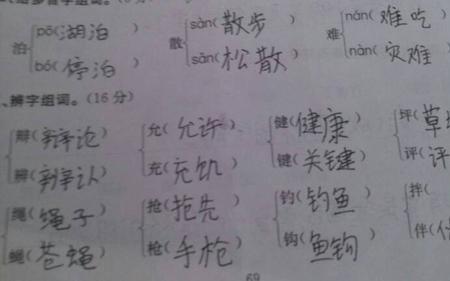 多音字组词。
pō(湖泊) sàn(散步) nán(难吃)
泊 散 难
bó(停泊) sǎn(松散) nàn(灾难)
、辨字组词。(16分)
辩(辩论) 允(允许) 健(健康) 坪(草
辨(辨认) 充(充饥) 键(关键) 评(评
绳(绳子) 抢(抢先) 钓(钓鱼) 拌(
蝇(苍蝇) 枪(手枪) 钩(鱼钩) 伴(
69